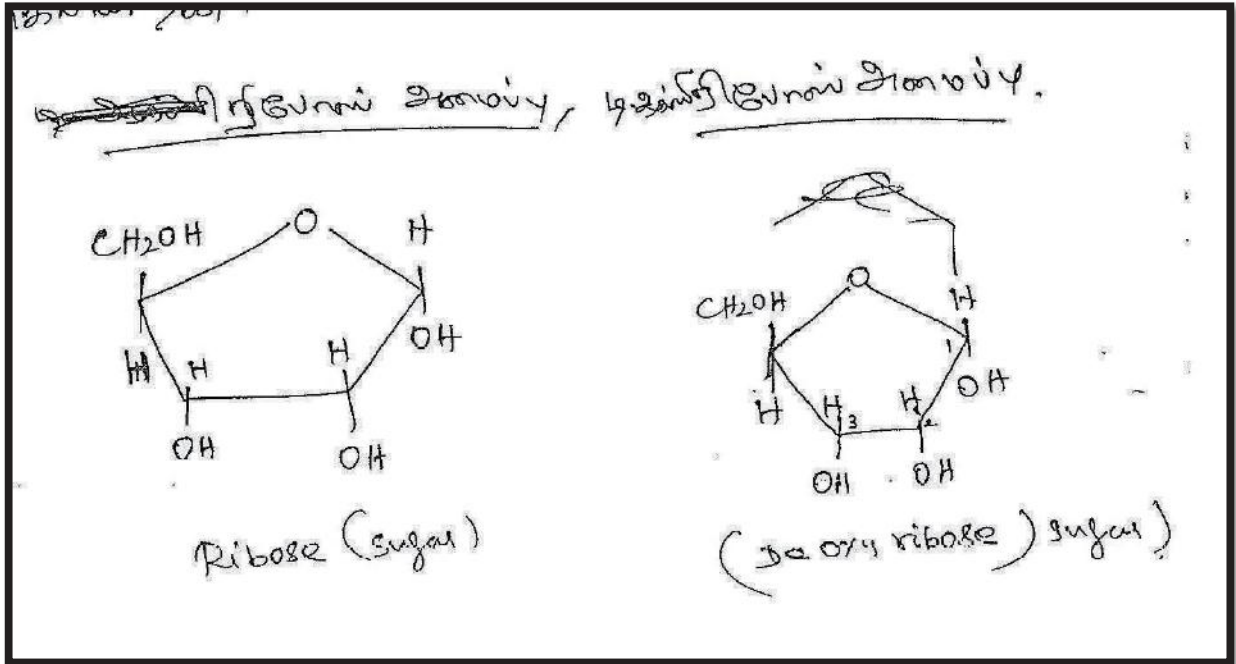 ரிபோஸ் அமைப்பு, டிஆக்ஸிரிபோஸ் அமைப்பு.
CH2OH O H
H H H OH
OH OH
Ribose (sugar)
O
CH2OH H
1
H H H OH
3 2
OH OH
(De oxy ribose) sugar)